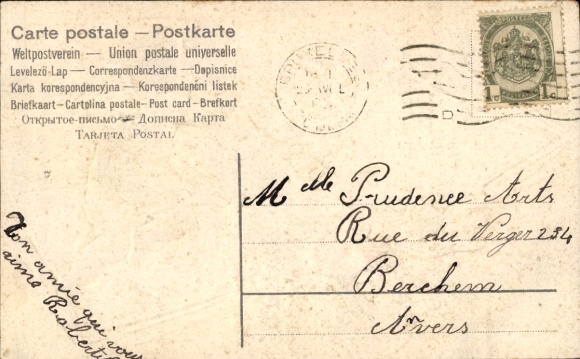 Carte postale — Postkarte
Weltpostverein — Union postale universelle
Levelező-Lap — Correspondenzkarte — Dopisnice
Karta korespondencyjna — Korespondenční listek
Briefkaart — Cartolina postale — Post card — Brefkort
Открытое-письмо — Дописна Карта
Tarjeta Postal
1c 1c
1
M Mlle Prudence Arts
Rue du Verger 234
Berchem
Anvers
Ton amie qui vous
aime